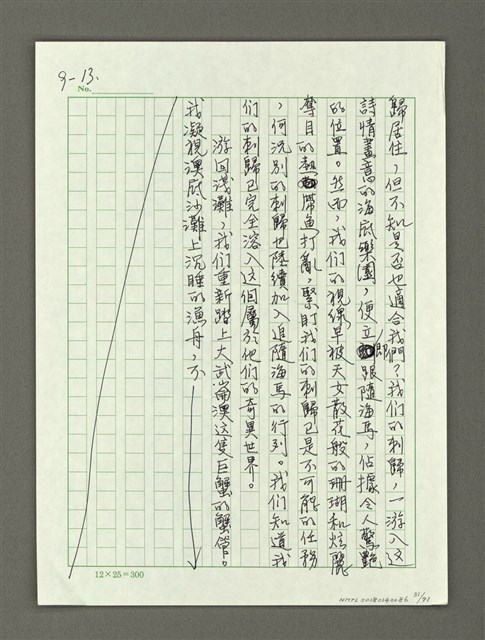 9-13.
No.
歸居住，但不知是否也適合我們？我們的刺歸，一游入這
詩情畫意的海底樂園，便立即跟隨海馬，佔據令人驚艷
的位置。然而，我們的視線早被天女散花般的珊瑚和炫麗
奪目的熱帶魚打亂，緊盯我們的刺歸已是不可能的任務
，何況別的刺歸也陸續加入追隨海馬的行列。我們知道我
們的刺歸已完全溶入這個屬於他們的奇異世界。
游回淺灘，我們重新踏上大武崙澳這隻巨蟹的蟹管。
我凝視澳底沙灘上沉睡的漁舟，不
12×25=300
31/71